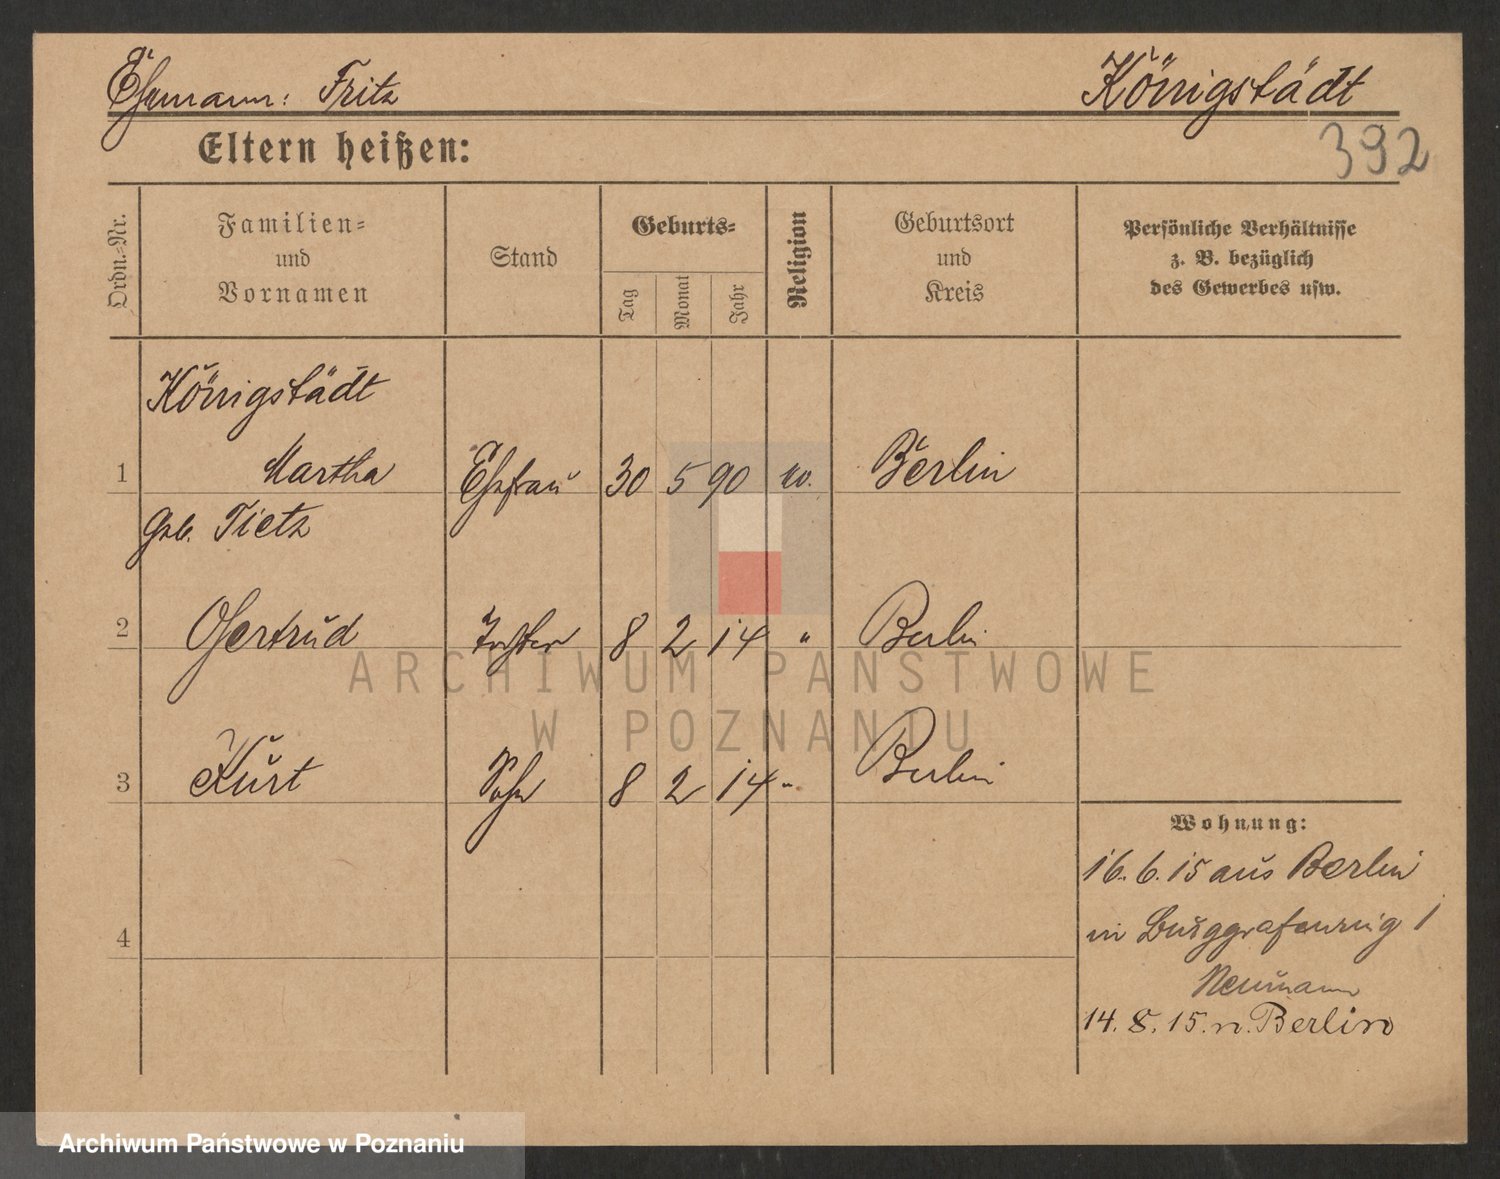 Ehemann: Fritz Königstädt
392
Eltern heißen:
Ordn.-Nr.
Familien-
und
Vornamen
Stand
Geburts-
Tag
Monat
Jahr
Religion
Geburtsort
und
Kreis
Persönliche Verhältnisse
z. B. bezüglich
des Gewerbes usw.
Königstädt
1 Martha Ehefrau 30 5 90 ev. Berlin
geb. Tietz
2 Gertrud Tochter 8 2 14 " Berlin
3 Kurt Sohn 8 2 14 " Berlin
4
Wohnung:
16. 6. 15 aus Berlin
in Burggrafenring 1
Neumann
14. 8. 15. n. Berlin
ARCHIWUM PAŃSTWOWE
W POZNANIU
Archiwum Państwowe w Poznaniu